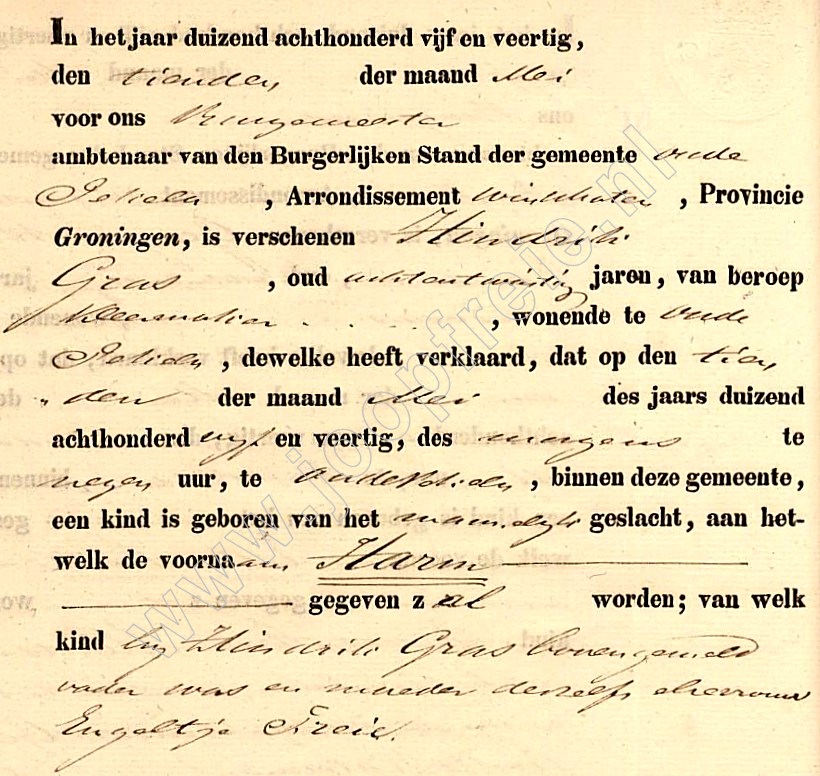 In het jaar duizend achthonderd vijf en veertig,
den tienden der maand Mei
voor ons Burgemeester
ambtenaar van den Burgerlijken Stand der gemeente Oude
Pekela, Arrondissement Winschoten, Provincie
Groningen, is verschenen Hindrik
Gras, oud achtentwintig jaren, van beroep
kleermaker . . . . , wonende te Oude
Pekela, dewelke heeft verklaard, dat op den tien
„ den der maand Mei des jaars duizend
achthonderd vijf en veertig, des morgens te
negen uur, te Oude Pekela, binnen deze gemeente,
een kind is geboren van het mannelijk geslacht, aan het-
welk de voornaam Harm
gegeven zal worden; van welk
kind hij Hindrik Gras bovengemeld
vader was en moeder deszelfs ehevrouw
Engeltje Freie.
www.joopfreie.nl